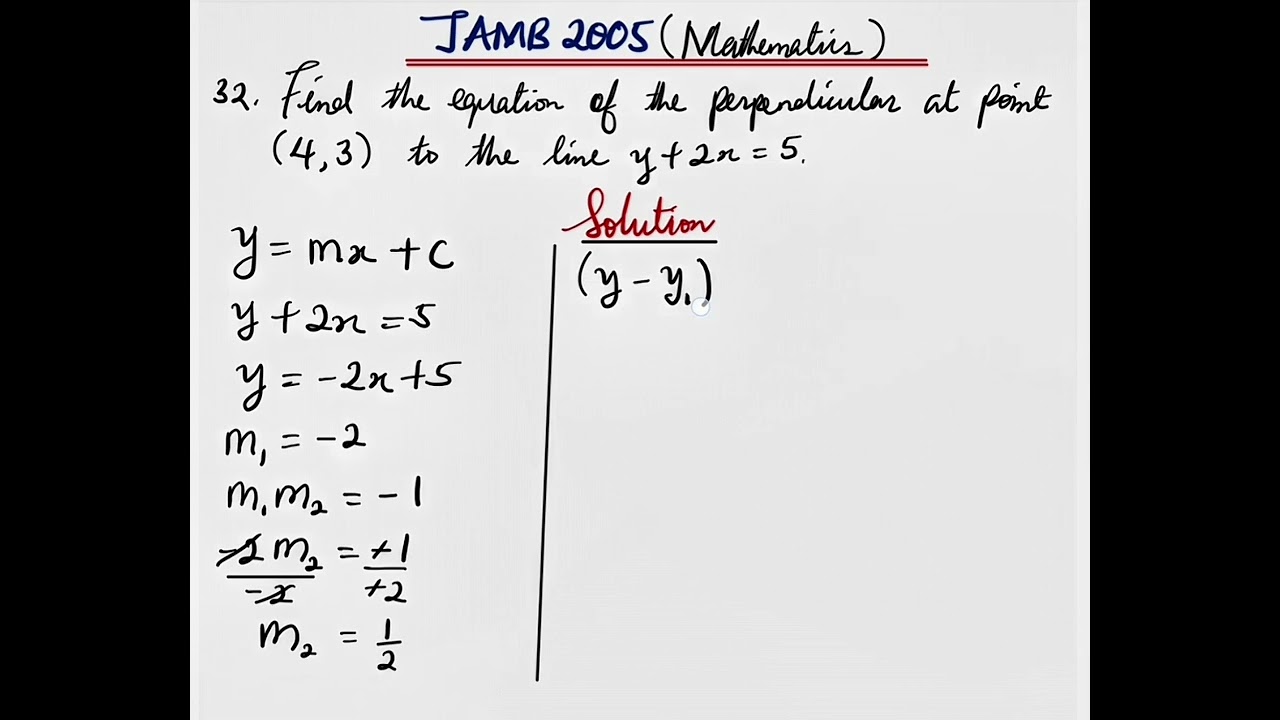 JAMB 2005 (Mathematics)
32. Find the equation of the perpendicular at point
(4,3) to the line y + 2x = 5.
Solution
y = mx + c
y + 2x = 5
y = -2x + 5
m₁ = -2
m₁m₂ = -1
-2m₂/-2 = +1/+2
m₂ = 1/2
(y - y₁)